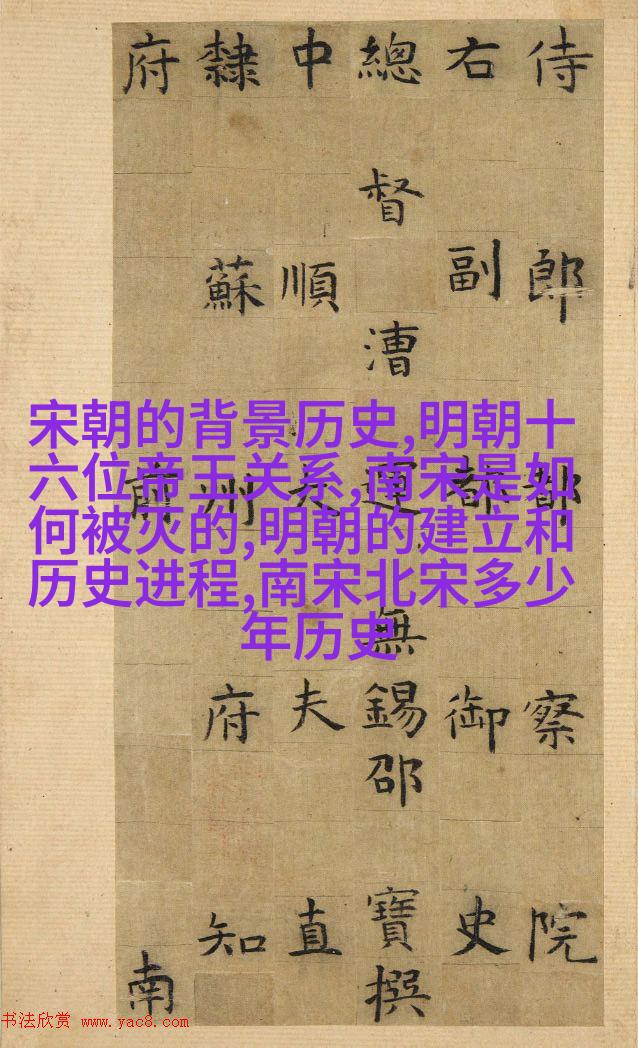 侍郎都察院
右副都御史
總督漕運無錫邵寶撰
中順大夫直
隸蘇州府知
府前南
宋朝的背景历史,明朝十
六位帝王关系,南宋是如
何被灭的,明朝的建立和
历史进程,南宋北宋多少
年历史
书法欣赏 www.yac8.com